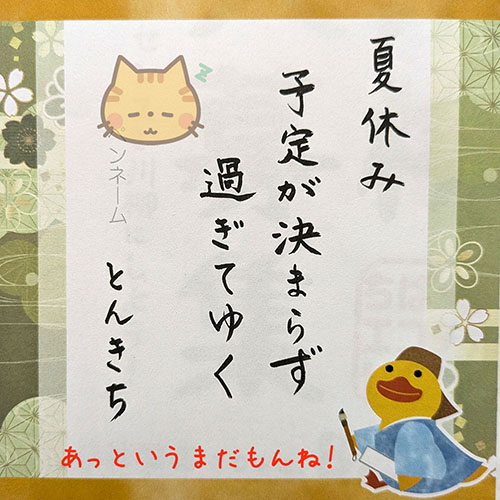 夏休み
予定が決まらず
過ぎてゆく
ンネーム
とんきち
あっというまだもんね!